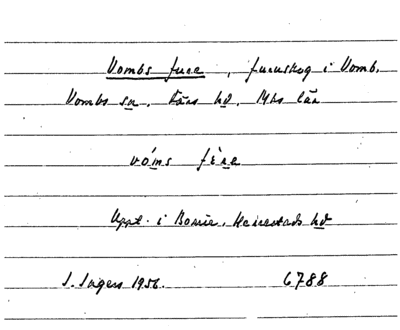 Vombs fure, furuskog i Vomb,
Vombs sn, Färs hd, Mhs län
vóms fùre
Uppt. i Bonne, Herrestads hd
S. Ingers 1956. 6788